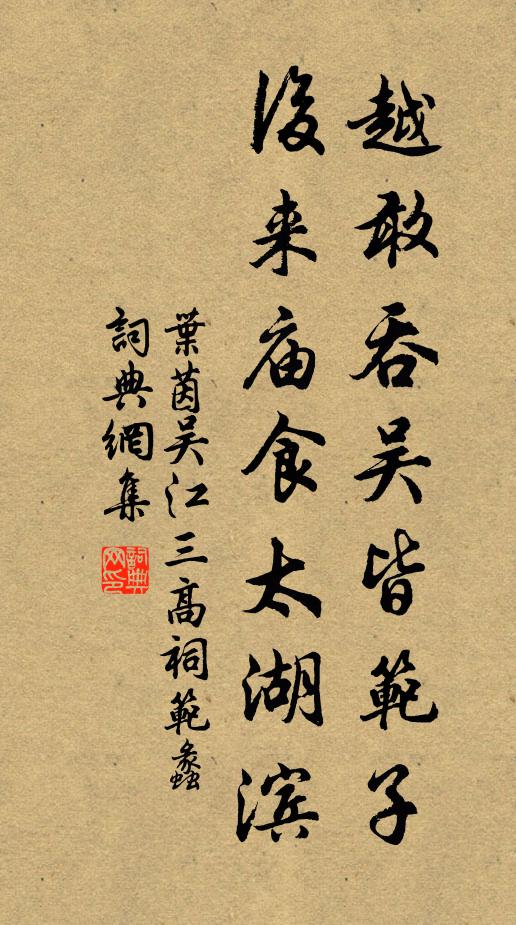 越敢吞吴皆範子
後来庙食太湖滨
葉茵吴江三高祠範蠡
詞典網集
詞典
网印